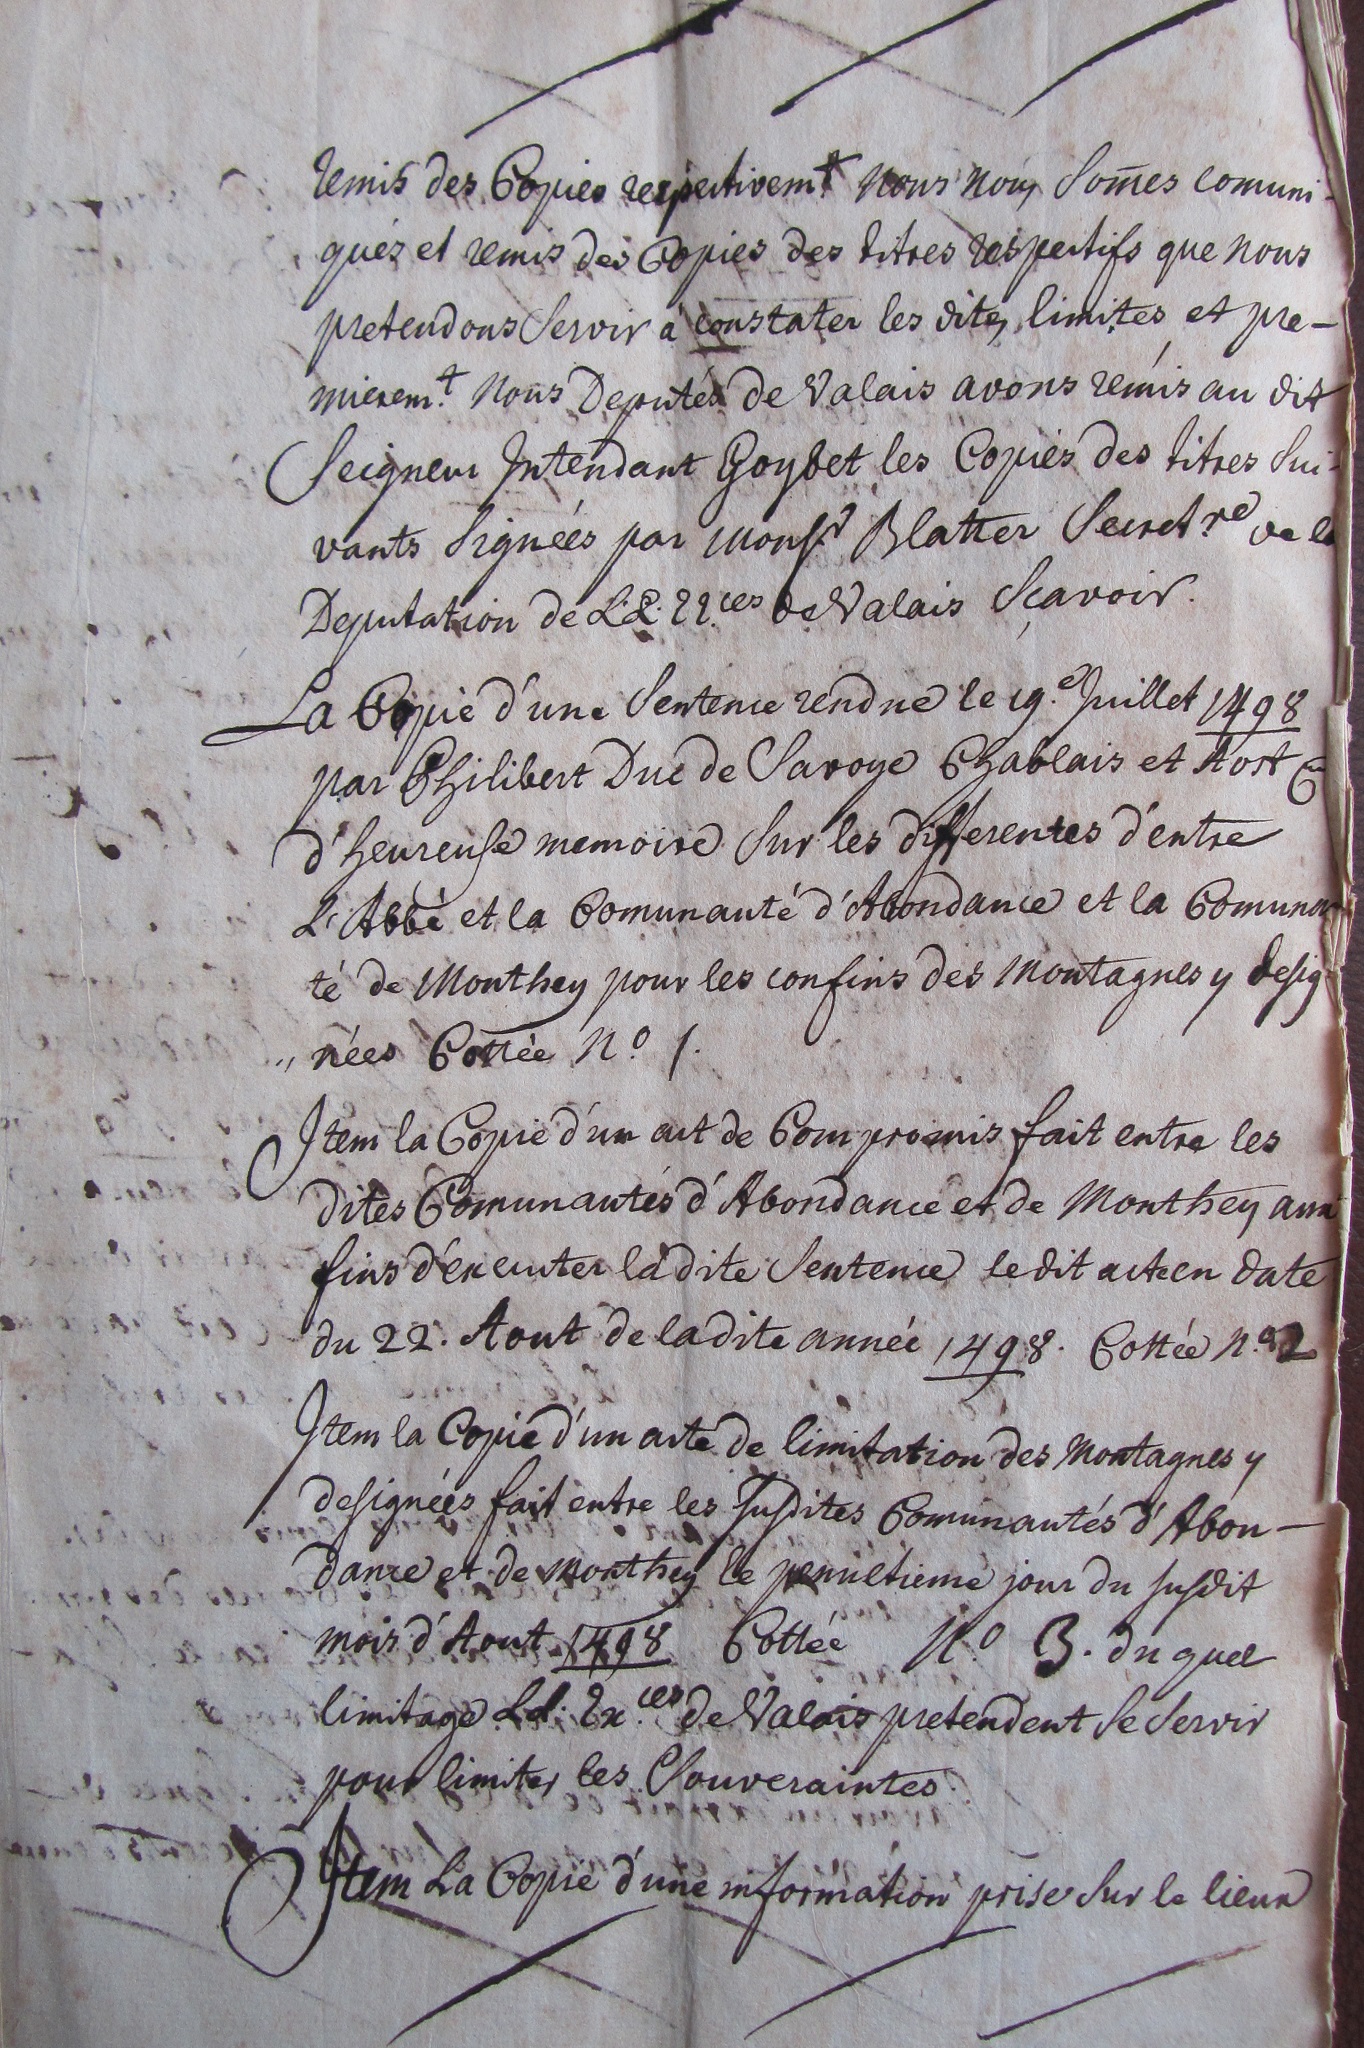 remis des Copies respectivem.t Nous nous somes comuni-
qués et remis des Copies des titres respectifs que nous
pretendons Servir à constater les dites limites et pre-
mierem.t Nous Deputés de Valais avons remis au dit
Seigneur Intendant Goybet les Copies des titres Sui-
vants Signées par Monsr Blatter Secret.re de la
Deputation de L.L. EE.ces de Valais Sçavoir.
La Copie d'une Sentence rendue le 19.e Juillet 1498
par Philibert Duc de Savoye Chablais et Aost &
d'heureuse memoire Sur les differentes d'entre
L'Abbé et la Comunauté d'Abondance et la Comunau
té de Monthey pour les confins des Montagnes y desig-
" nées Cottée N.o 1.
Item la Copie d'un act de Compromis fait entre les
dites Comunautés d'Abondance et de Monthey aux
fins d'executer ladite Sentence ledit acte en date
du 22. Aout de ladite année 1498. Cottée N.o 2
Item la Copie d'un acte de limitation des Montagnes y
designées fait entre les susdites Comunautés d'Abon-
dance et de Monthey le penultieme jour du susdit
mois d'Aout 1498 Cottée N.o 3. du quel
limitage LL. Ex.ces de Valais pretendent Se Servir
pour limiter les Souveraintes.
Item La Copie d'une information prise Sur le lieux